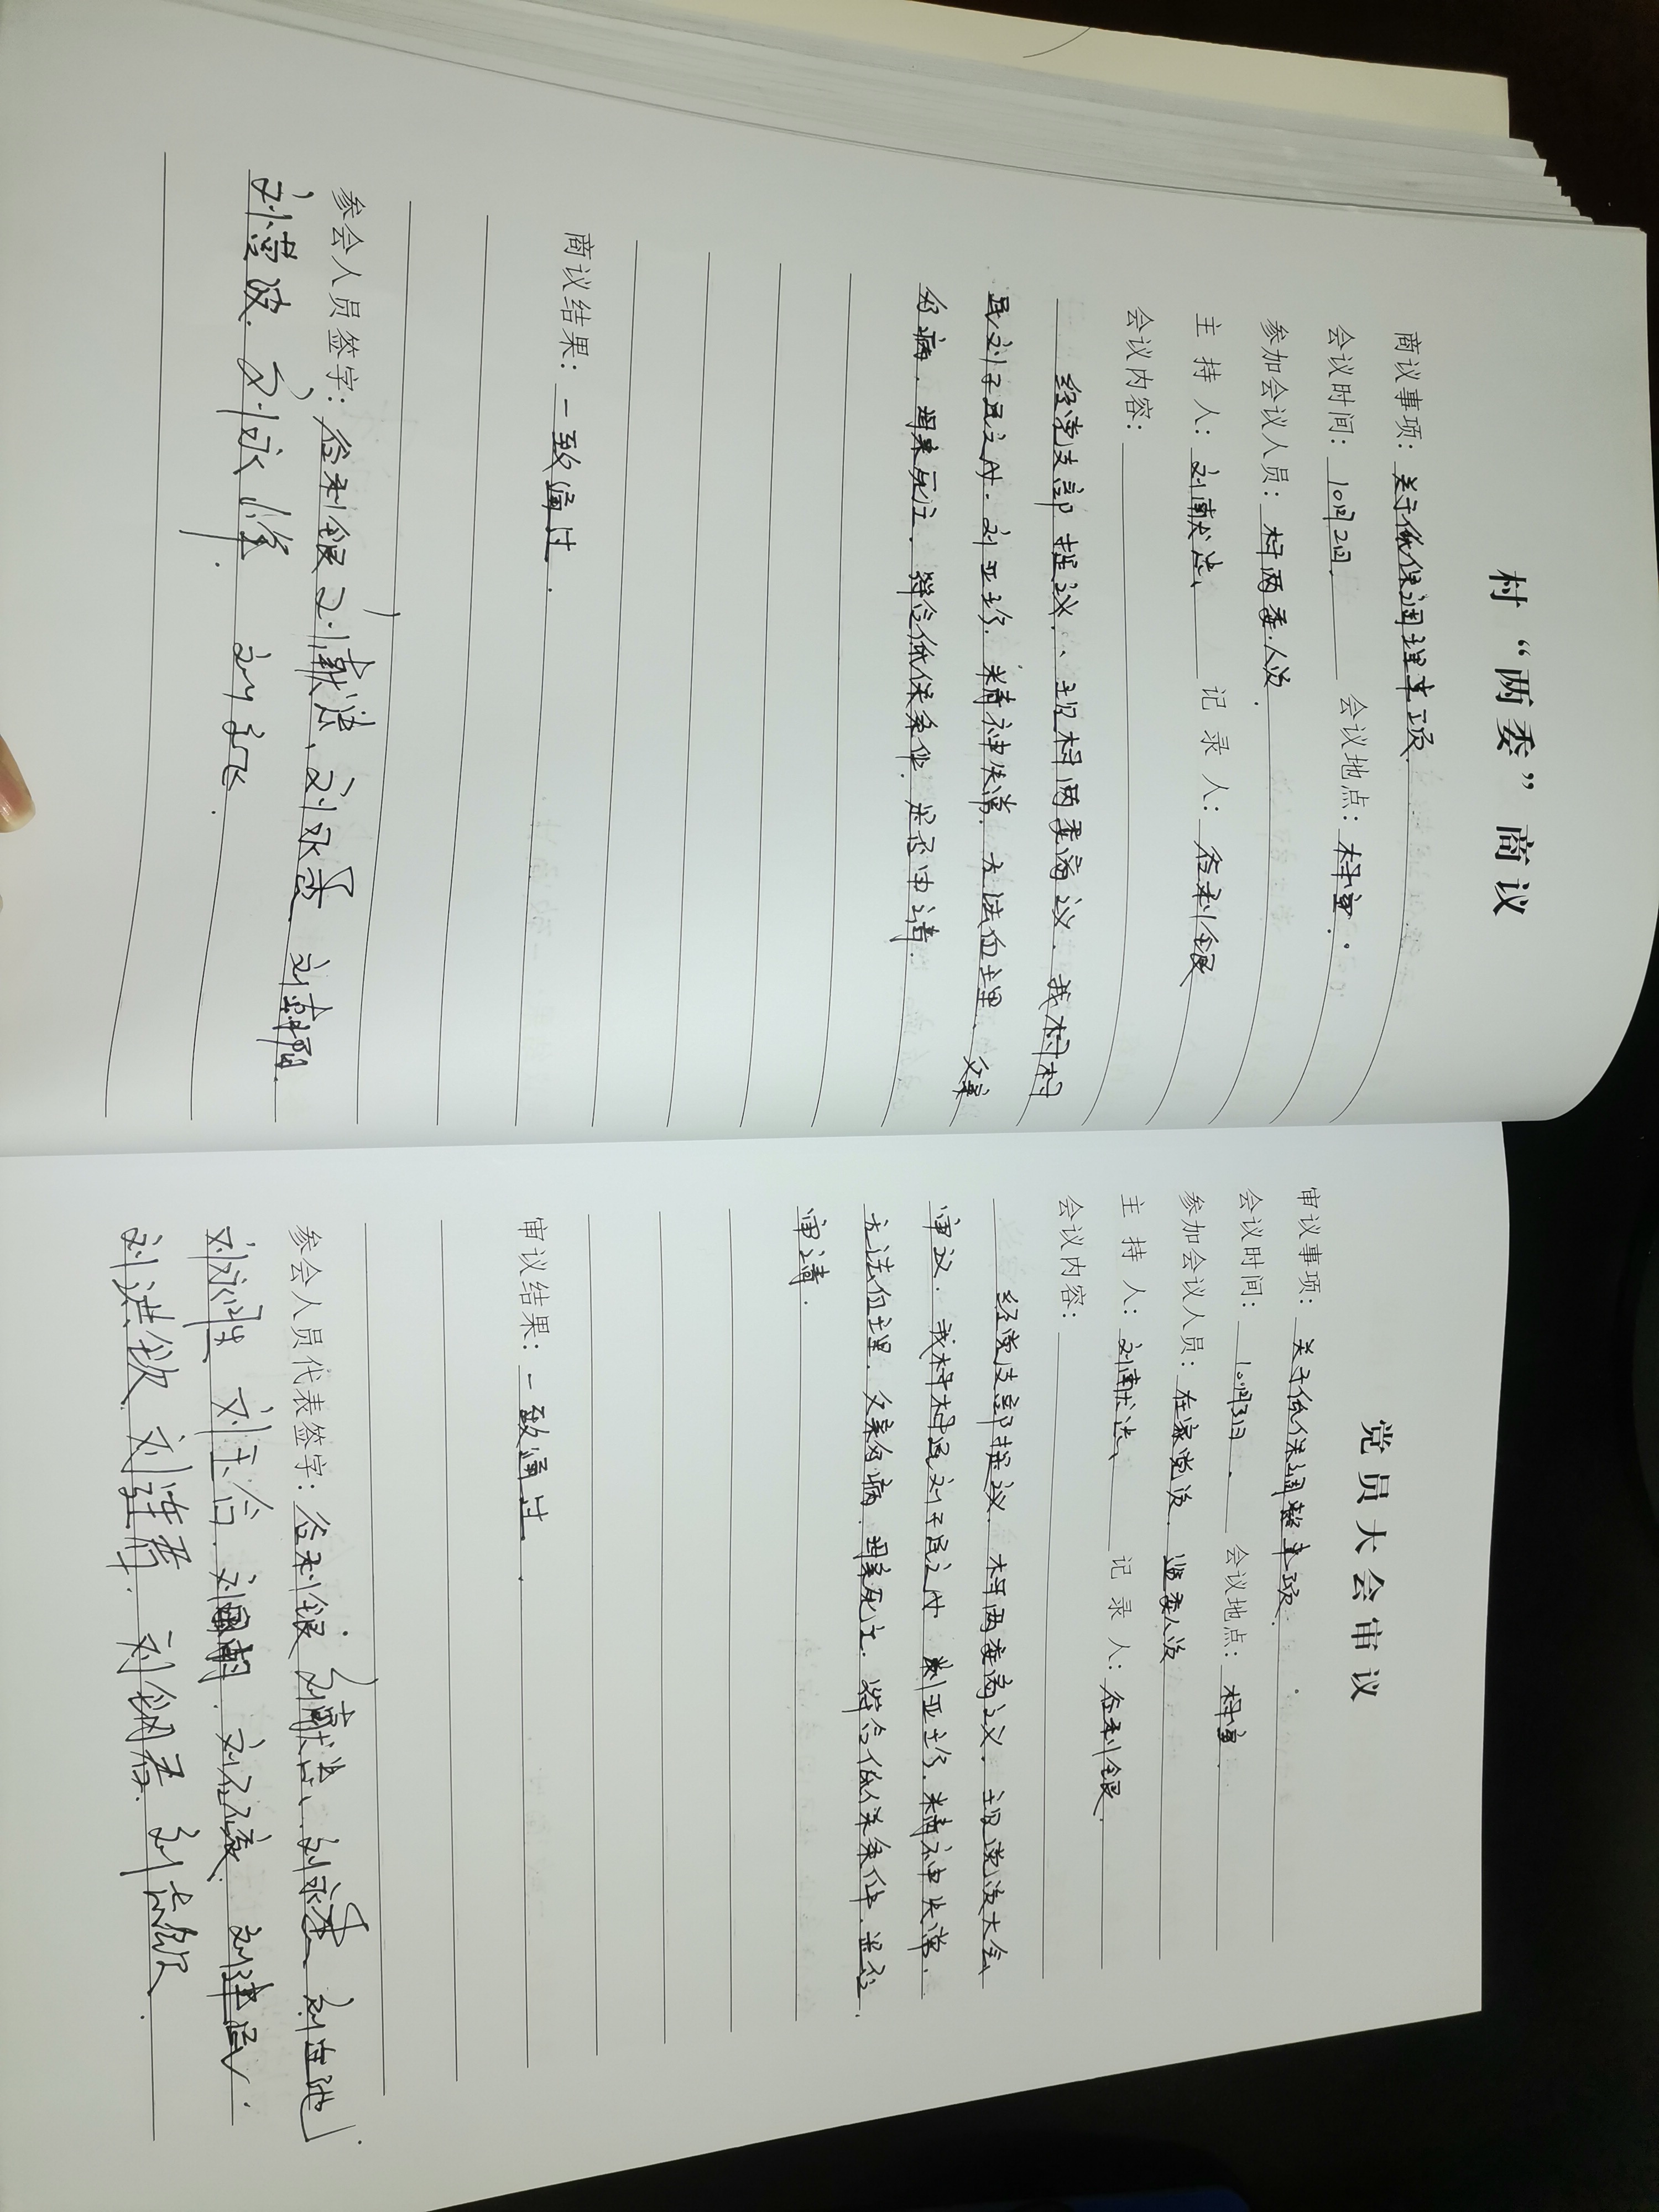 村“两委”商议
商议事项：关于低保调理事项.
会议时间：10月2日. 会议地点：村室.
参加会议人员：村两委.人员.
主持人：刘献忠、 记录人：谷利银
会议内容：
经党支部提议.、现村两委商议.我村村
民刘子民之女.刘亚珍.精神失常.无法自理.父亲
多病.母亲死亡.符合低保条件.是否申请.
商议结果：一致通过.
参会人员签字：谷利银 刘献忠、刘永 刘朝阳.
刘营波.刘永峰. 刘飞.
党员大会审议
审议事项：关于低保调整事项.
会议时间：10月3日. 会议地点：村室.
参加会议人员：在家党员. 监委人员
主持人：刘献忠、 记录人：谷利银.
会议内容：
经党支部提议.村两委商议.现党员大会
审议.我村村民刘子民之女 刘亚珍.精神失常.
无法自理.父亲多病.母亲死亡.符合低保条件.是否.
审请.
审议结果：一致通过.
参会人员代表签字：谷利银 刘献忠、刘永 刘
刘永 刘玉合. 刘 刘 刘建民.
刘洪钦.刘连群.刘钢君.刘志钦.